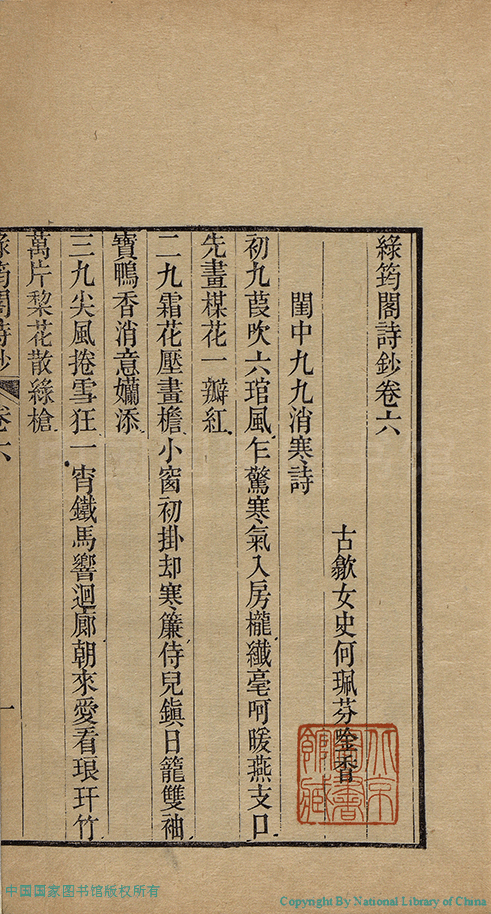 綠筠閣詩鈔卷六
古歙女史何珮芬唫香
閨中九九消寒詩
初九葭吹六琯風乍驚寒氣入房櫳纖毫呵暖燕支口
先畫楳花一瓣紅
二九霜花壓畫檐小窗初掛却寒簾侍兒鎮日籠雙袖
寶鴨香消意嬾添
三九尖風捲雪狂一宵鐵馬響迴廊朝來愛看琅玕竹
萬片棃花散綠槍
綠筠閣詩鈔 卷六 一
北京圖書館藏
中国国家图书馆版权所有
Copyright By National Library of China